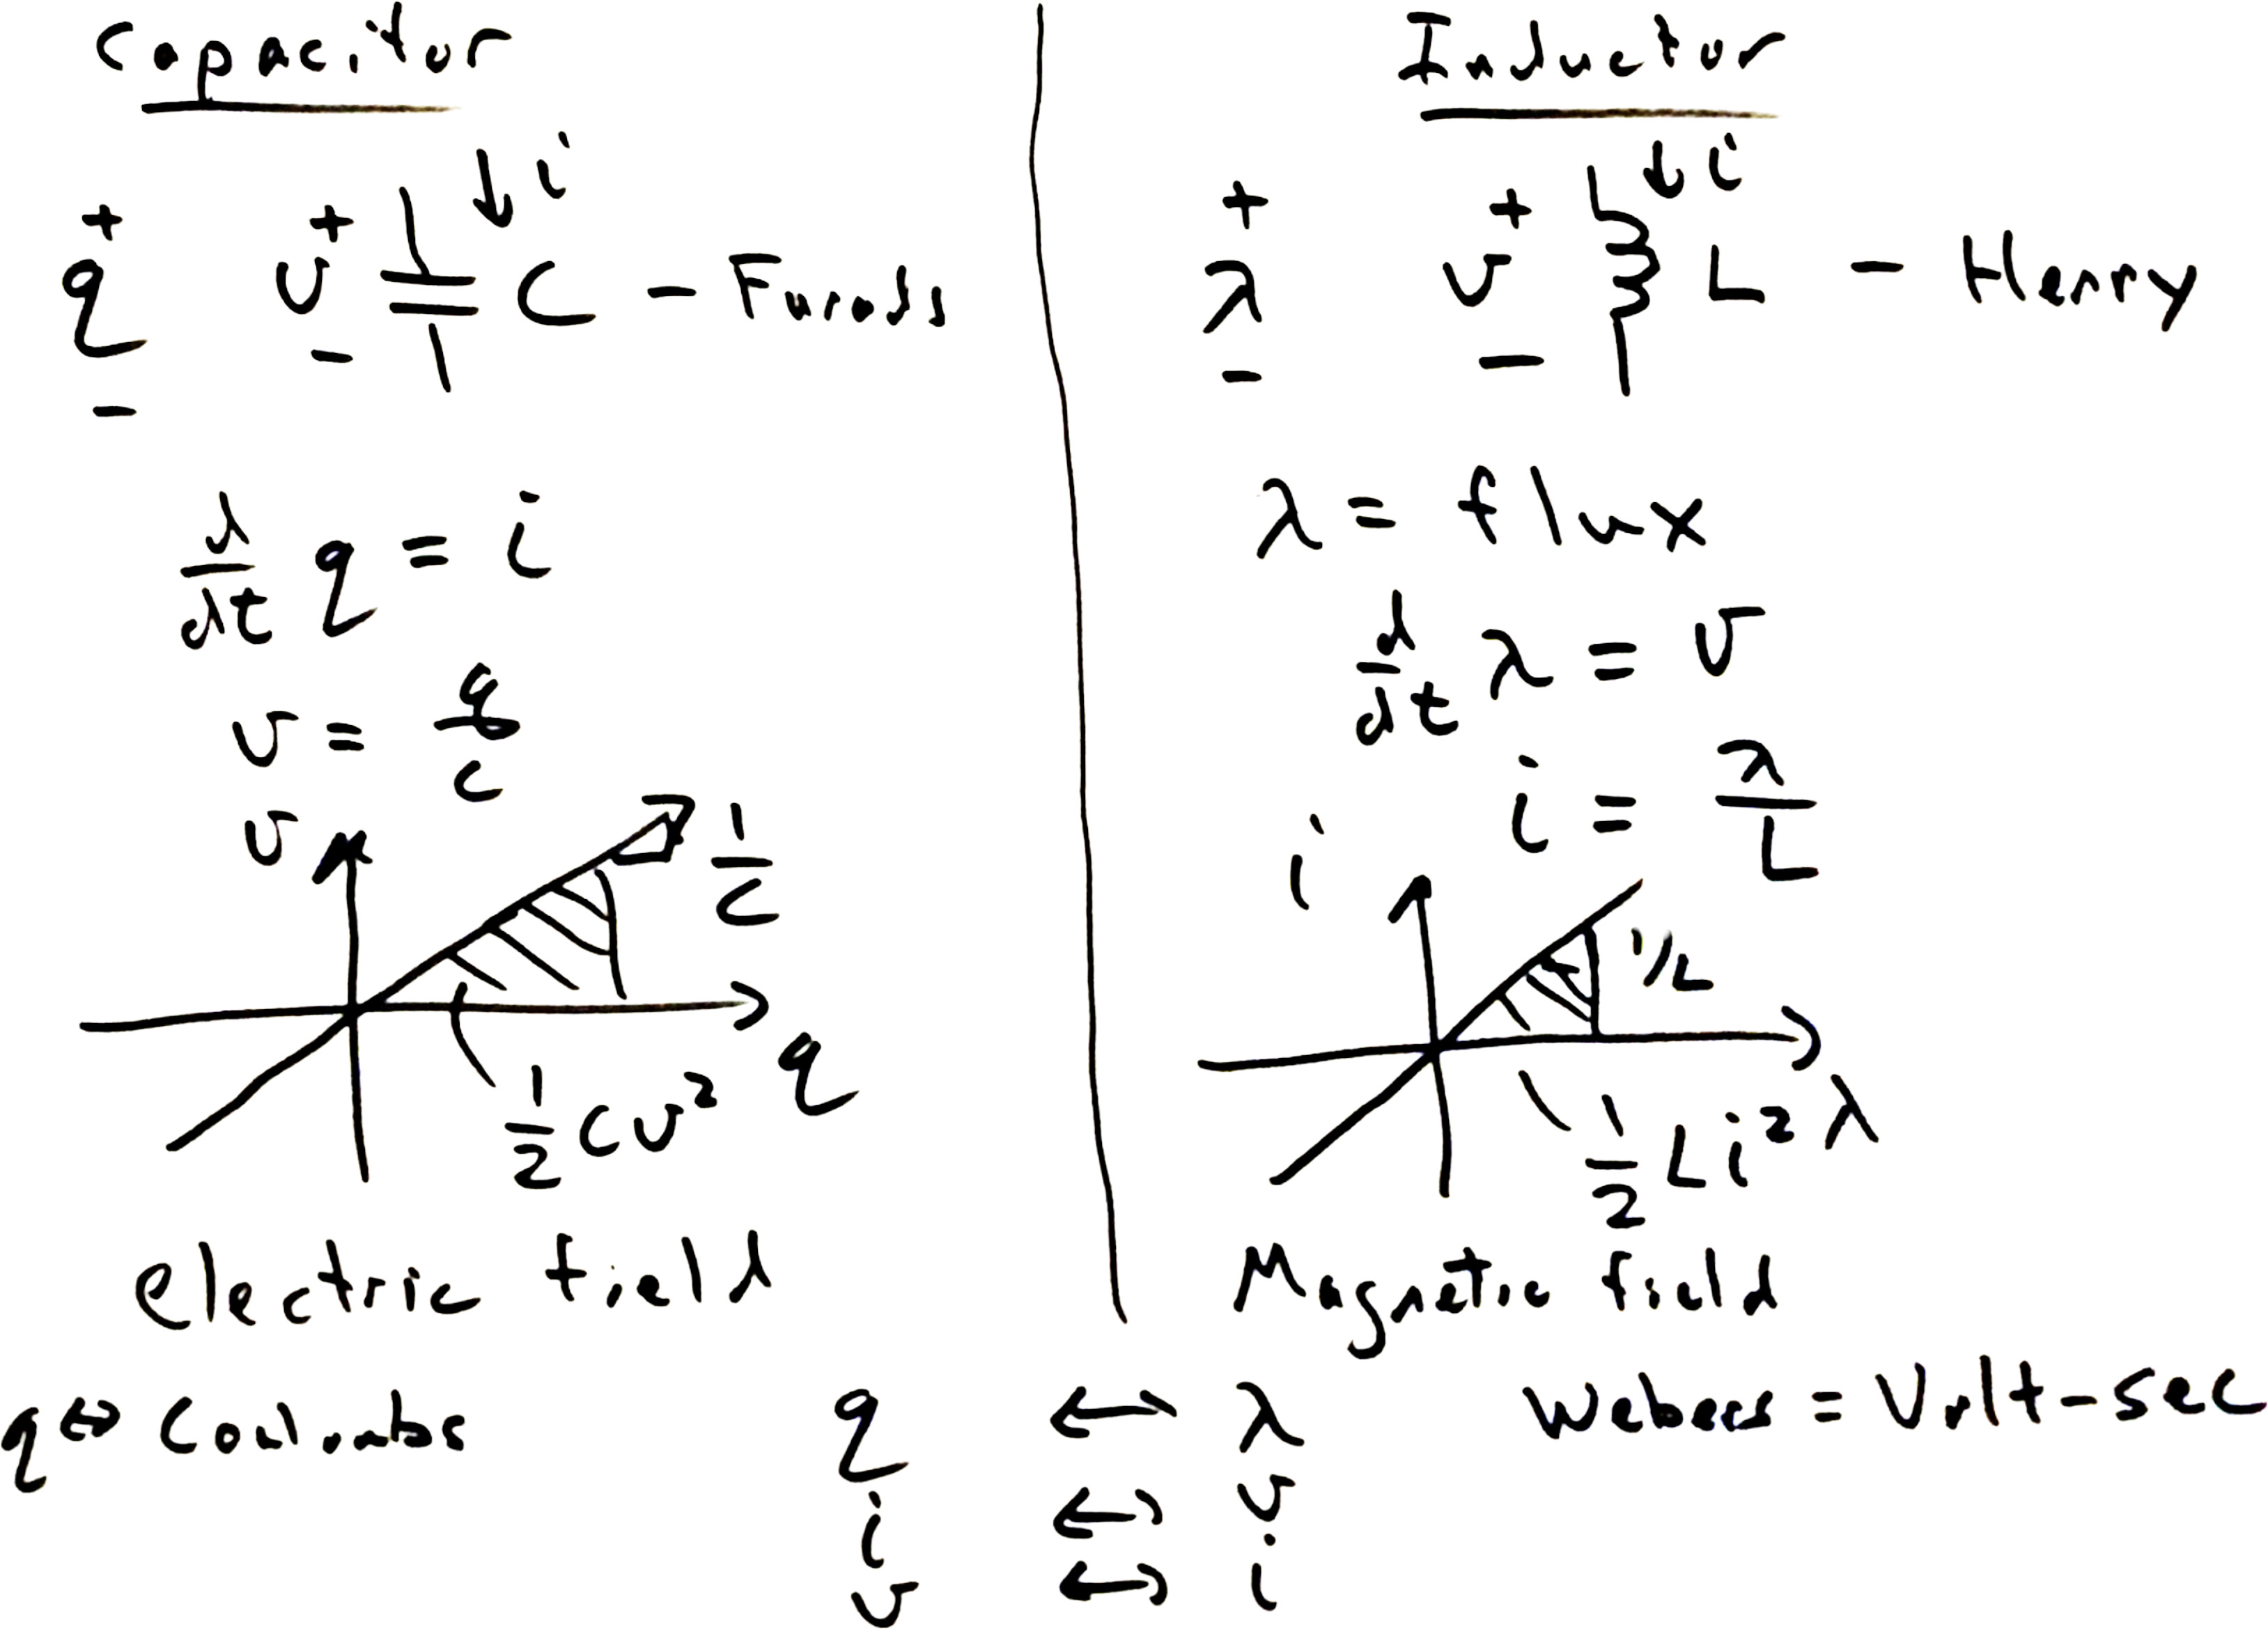 Capacitor
↓ i
+ +
q v C - Farads
- -
d/dt q = i
v = q/C
v
1/C
q
1/2 C v²
electric field
q ⇔ Coulombs
Inductor
↓ i
+ +
λ v L - Henry
- -
λ = flux
d/dt λ = v
i = λ/L
i
1/L
1/2 L i² λ
Magnetic field
Webers = Volt-sec
q ↔ λ
i ↔ v
v ↔ i